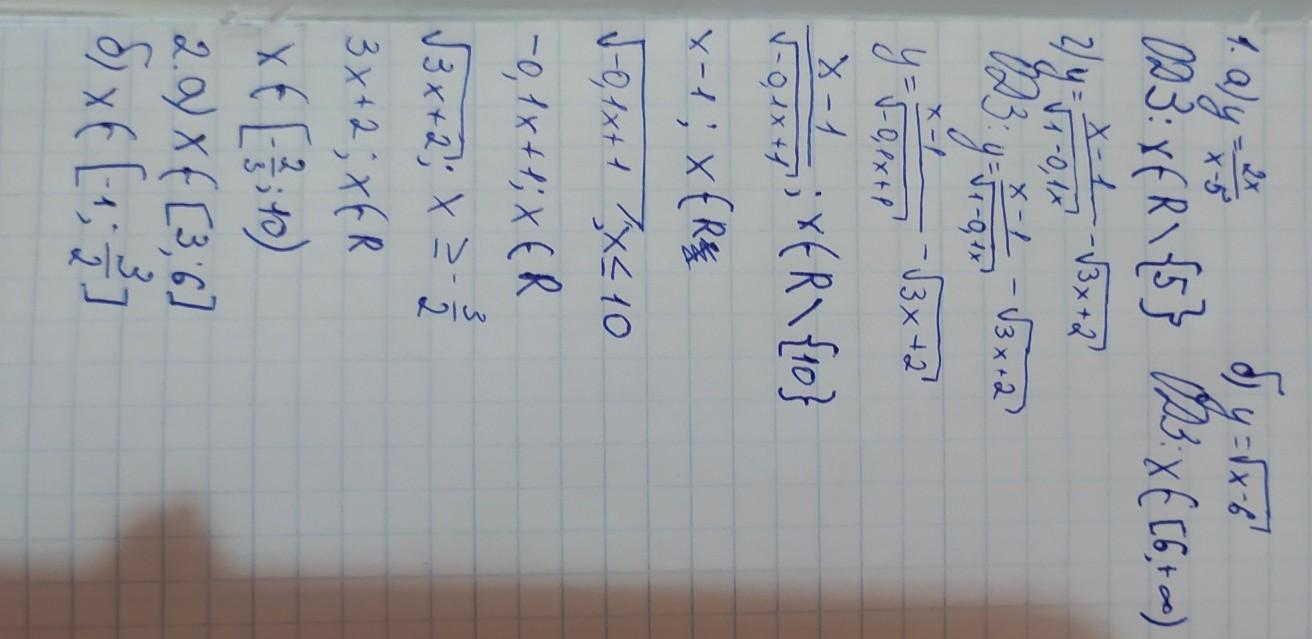 1. а) y = 2x/x-5 б) y = √x-6
ОДЗ: x ∈ R \ {5} ОДЗ: x ∈ [6, +∞)
2) y = x-1/√1-0,1x - √3x+2
ОДЗ: y = x-1/√1-0,1x - √3x+2
y = x-1/√-0,1x+1 - √3x+2
x-1/√-0,1x+1; x ∈ R \ {10}
x-1; x ∈ R
√-0,1x+1; x ≤ 10
-0,1x+1; x ∈ R
√3x+2; x ≥ -3/2
3x+2; x ∈ R
x ∈ [-2/3; 10)
2. а) x ∈ [3; 6]
б) x ∈ [-1; 3/2]